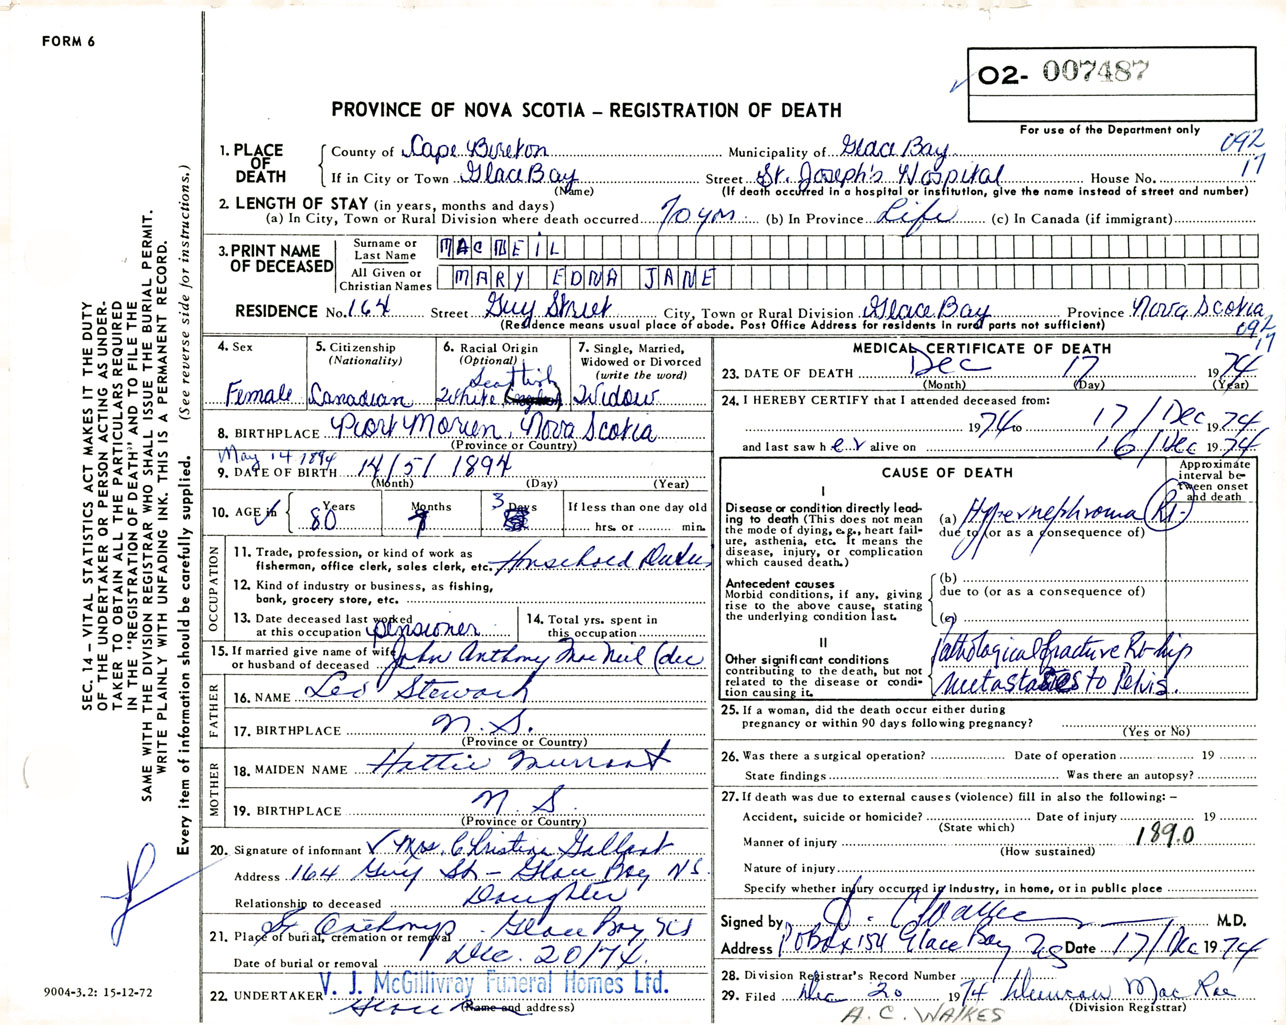 FORM 6
O2- 007487
PROVINCE OF NOVA SCOTIA – REGISTRATION OF DEATH
For use of the Department only
092
17
1. PLACE OF DEATH
County of Cape Breton Municipality of Glace Bay
If in City or Town Glace Bay Street St. Joseph's Hospital House No.
(Name) (If death occurred in a hospital or institution, give the name instead of street and number)
2. LENGTH OF STAY (in years, months and days)
(a) In City, Town or Rural Division where death occurred 70 yrs (b) In Province Life (c) In Canada (if immigrant)
3. PRINT NAME OF DECEASED
Surname or Last Name MAC NEIL
All Given or Christian Names MARY EDNA JANE
RESIDENCE No. 164 Street Guy Street City, Town or Rural Division Glace Bay Province Nova Scotia
(Residence means usual place of abode. Post Office Address for residents in rural parts not sufficient)
092
17
4. Sex
Female
5. Citizenship
(Nationality)
Canadian
6. Racial Origin
(Optional)
Scottish
White
7. Single, Married,
Widowed or Divorced
(write the word)
Widow
8. BIRTHPLACE Port Morien, Nova Scotia
(Province or Country)
May 14 1894
9. DATE OF BIRTH 14/5/1894
(Month) (Day) (Year)
10. AGE in Years 80 Months 7 Days 3 If less than one day old
hrs. or min.
OCCUPATION
11. Trade, profession, or kind of work as
fisherman, office clerk, sales clerk, etc. Household Duties
12. Kind of industry or business, as fishing,
bank, grocery store, etc.
13. Date deceased last worked
at this occupation pensioner
14. Total yrs. spent in
this occupation
15. If married give name of wife
or husband of deceased John Anthony MacNeil (dec
FATHER
16. NAME Leo Stewart
17. BIRTHPLACE N.S.
(Province or Country)
MOTHER
18. MAIDEN NAME Hattie Murrant
19. BIRTHPLACE N.S.
(Province or Country)
20. Signature of informant Mrs. Christina Gallant
Address 164 Guy St - Glace Bay NS.
Relationship to deceased Daughter
21. Place of burial, cremation or removal St Anthony's Glace Bay NS
Date of burial or removal Dec. 20/74.
V. J. McGillivray Funeral Homes Ltd.
22. UNDERTAKER Glace
(Name and address)
MEDICAL CERTIFICATE OF DEATH
23. DATE OF DEATH Dec 17 1974
(Month) (Day) (Year)
24. I HEREBY CERTIFY that I attended deceased from:
1974 to 17/Dec 1974
and last saw her alive on 16/Dec 1974
CAUSE OF DEATH
Approximate interval between onset and death
I
Disease or condition directly leading to death (This does not mean the mode of dying, e.g., heart failure, asthenia, etc. It means the disease, injury, or complication which caused death.)
(a) Hypernephroma Rt.
due to (or as a consequence of)
Antecedent causes
Morbid conditions, if any, giving rise to the above cause, stating the underlying condition last.
(b)
due to (or as a consequence of)
(c)
II
Other significant conditions
contributing to the death, but not related to the disease or condition causing it.
Pathological fracture Rt-hip
metastases to Pelvis.
25. If a woman, did the death occur either during
pregnancy or within 90 days following pregnancy?
(Yes or No)
26. Was there a surgical operation? Date of operation 19
State findings Was there an autopsy?
27. If death was due to external causes (violence) fill in also the following: –
Accident, suicide or homicide? Date of injury 19
(State which)
189.0
Manner of injury
(How sustained)
Nature of injury
Specify whether injury occurred in industry, in home, or in public place
Signed by M.D.
Address P.O Box 154 Glace Bay NS Date 17/Dec 1974
28. Division Registrar's Record Number
29. Filed Dec 20 1974 Duncan MacRae
(Division Registrar)
A. C. WALKES
SEC. 14 – VITAL STATISTICS ACT MAKES IT THE DUTY
OF THE UNDERTAKER OR PERSON ACTING AS UNDER-
TAKER TO OBTAIN ALL THE PARTICULARS REQUIRED
IN THE "REGISTRATION OF DEATH" AND TO FILE THE
SAME WITH THE DIVISION REGISTRAR WHO SHALL ISSUE THE BURIAL PERMIT.
WRITE PLAINLY WITH UNFADING INK. THIS IS A PERMANENT RECORD.
Every item of information should be carefully supplied. (See reverse side for instructions.)
9004-3.2: 15-12-72